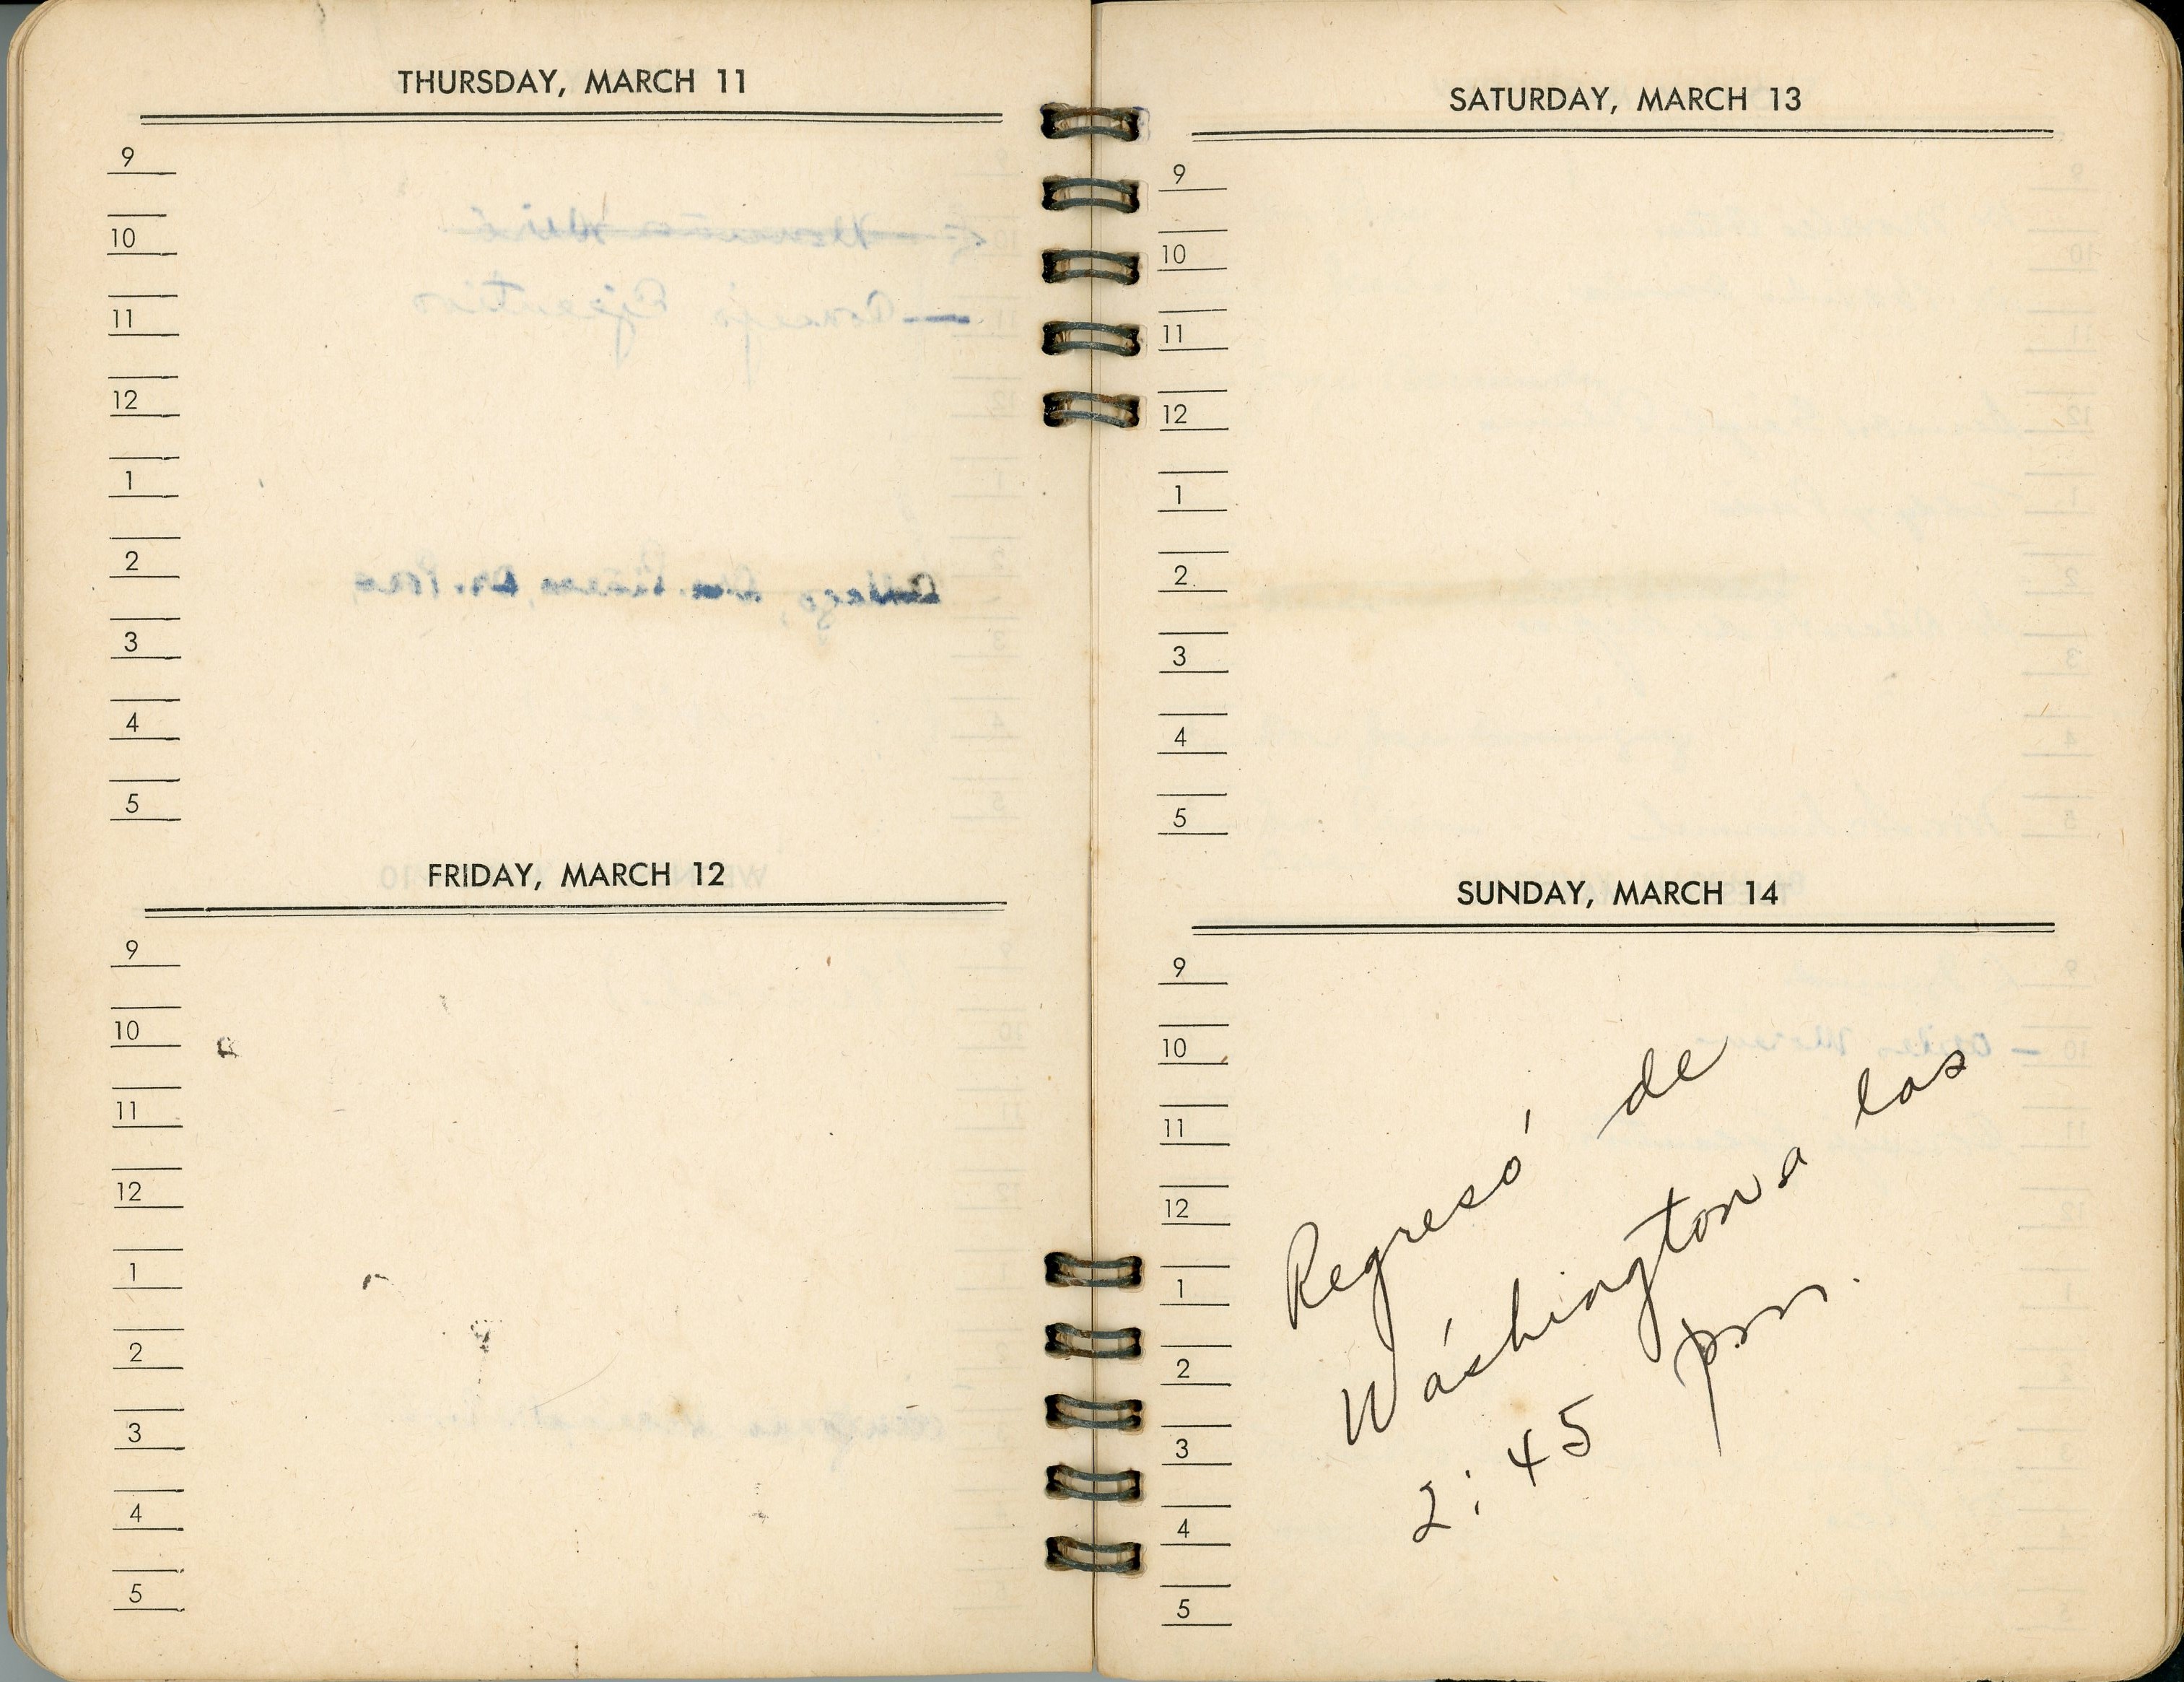 THURSDAY, MARCH 11
9
10
11
12
1
2
3
4
5
FRIDAY, MARCH 12
9
10
11
12
1
2
3
4
5
SATURDAY, MARCH 13
9
10
11
12
1
2
3
4
5
SUNDAY, MARCH 14
9
10
11
12
1
2
3
4
5
Regresó de
Wáshington a las
2:45 pm.